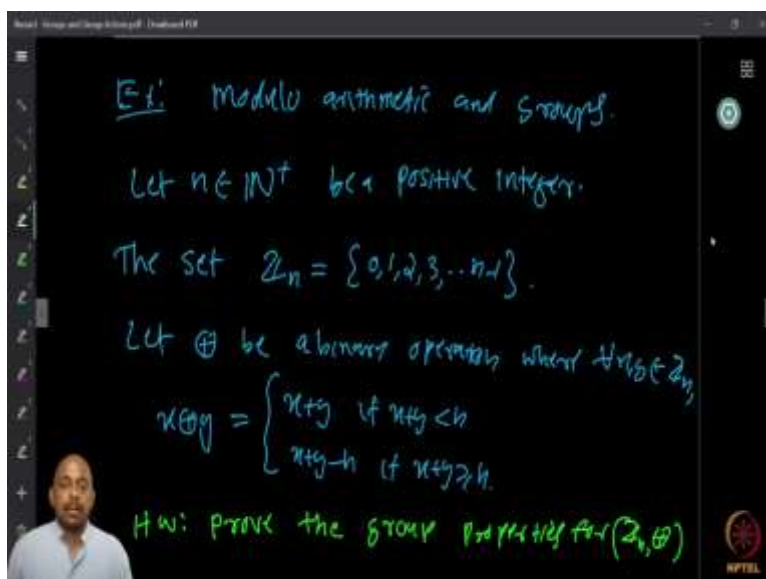 Ex: Modulo arithmetic and Groups.
Let n ∈ ℕ⁺ be a positive integer.
The set ℤn = {0,1,2,3,..n-1}.
Let ⊕ be a binary operation where ∀x,y ∈ ℤn,
x⊕y = { x+y if x+y < n
x+y-n if x+y ≥ n.
HW: prove the group properties for (ℤn, ⊕)
NPTEL